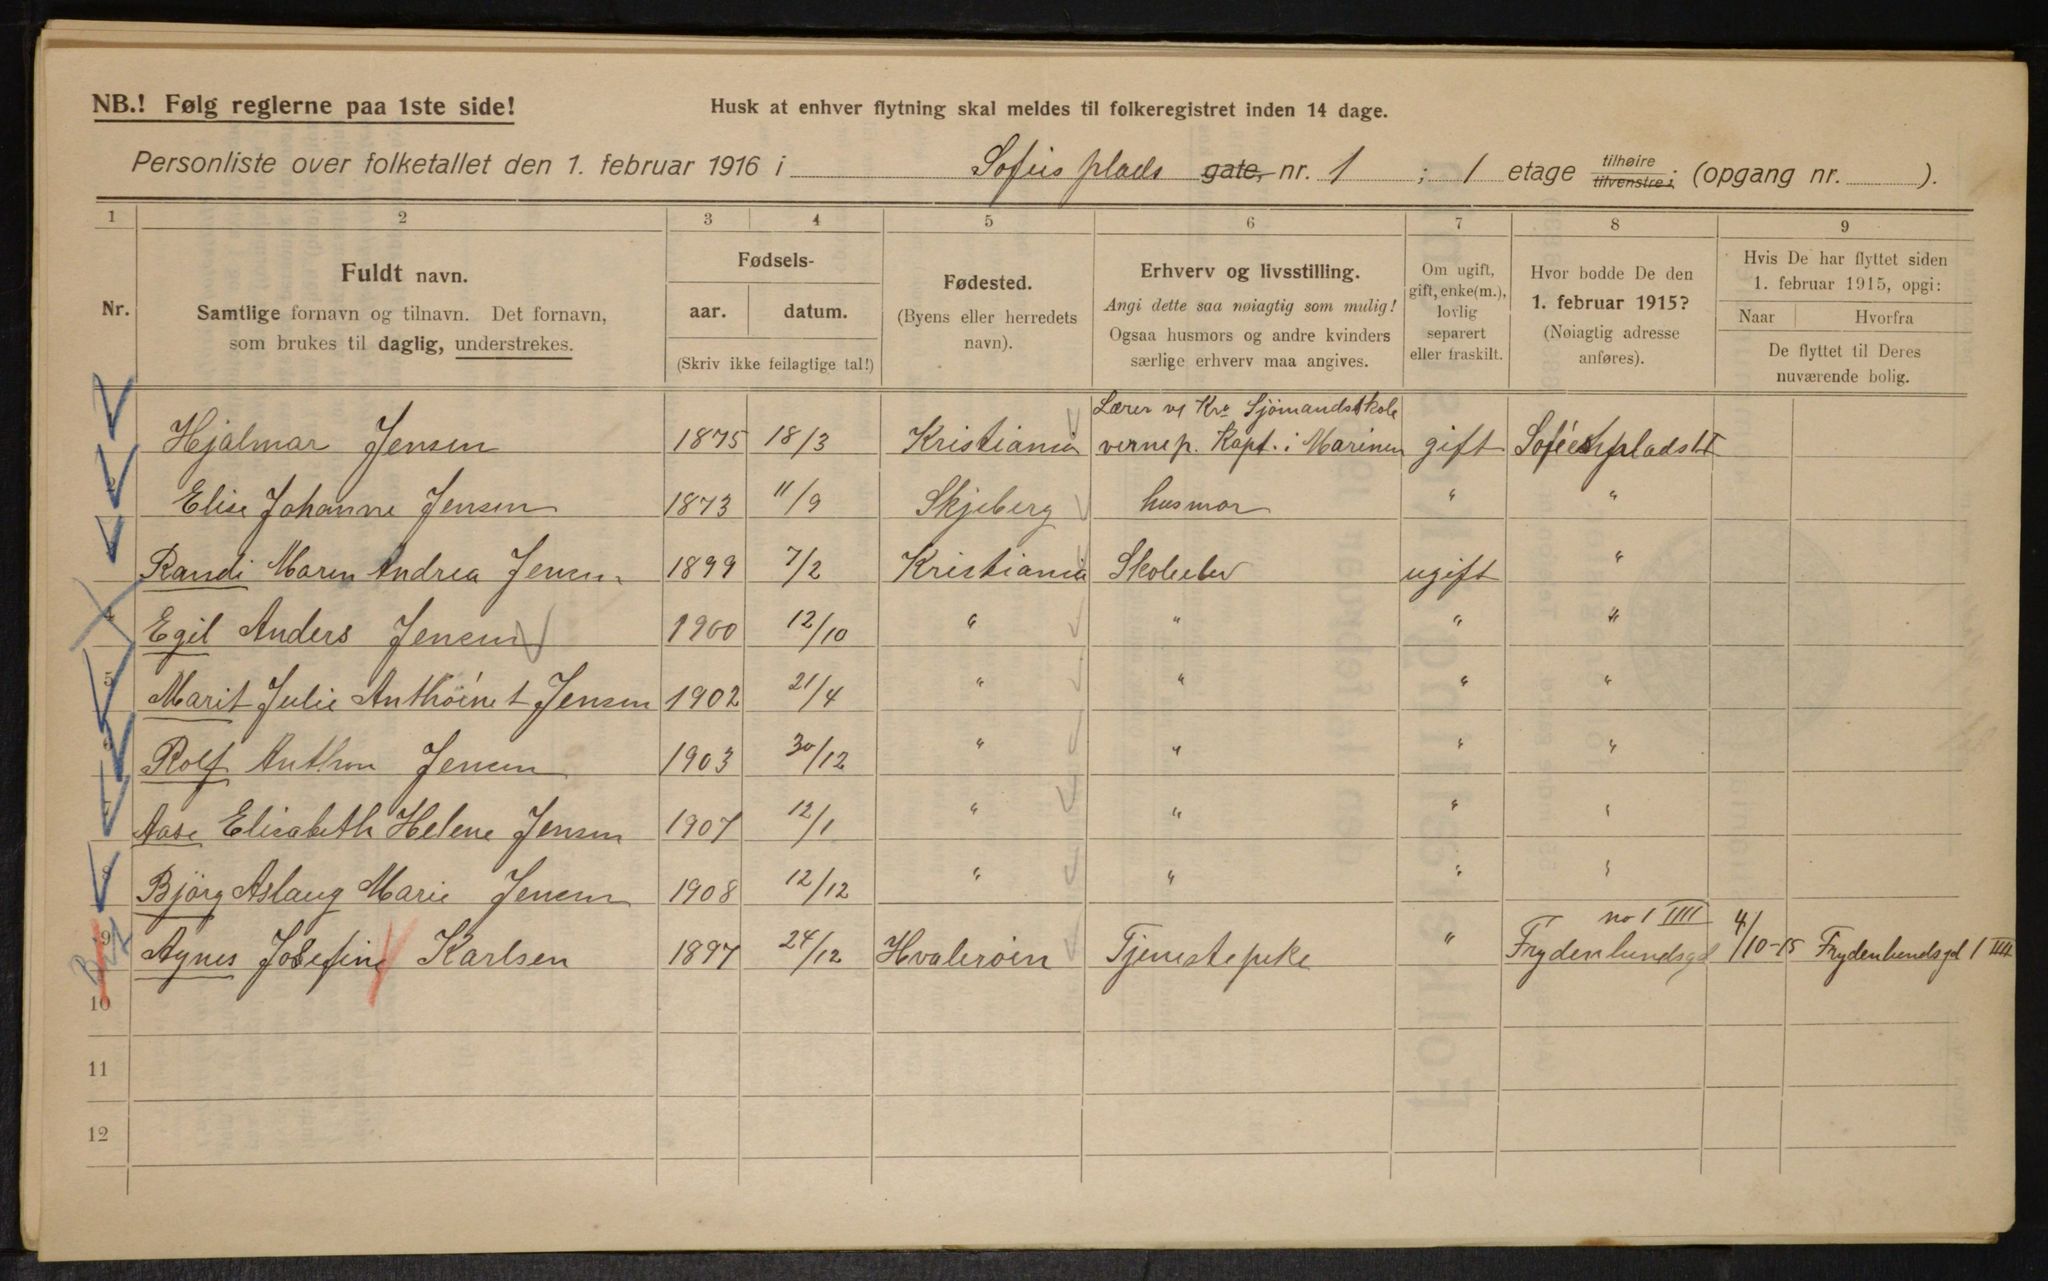 NB.! Følg reglerne paa 1ste side!
Husk at enhver flytning skal meldes til folkeregistret inden 14 dage.
Personliste over folketallet den 1. februar 1916 i Sofies plads gate, nr. 1 ; 1 etage tilhøire tilvenstre; (opgang nr. ).
1 2 3 4 5 6 7 8 9
Nr.
Fuldt navn.
Samtlige fornavn og tilnavn. Det fornavn,
som brukes til daglig, understrekes.
Fødsels-
aar. datum.
(Skriv ikke feilagtige tal!)
Fødested.
(Byens eller herredets
navn).
Erhverv og livsstilling.
Angi dette saa nøiagtig som mulig!
Ogsaa husmors og andre kvinders
særlige erhverv maa angives.
Om ugift,
gift, enke(m.),
lovlig
separert
eller fraskilt.
Hvor bodde De den
1. februar 1915?
(Nøiagtig adresse
anføres).
Hvis De har flyttet siden
1. februar 1915, opgi:
Naar Hvorfra
De flyttet til Deres
nuværende bolig.
Lærer v Kra Sjömandsskole
1 Hjalmar Jensen 1875 18/3 Kristiania vernep. Kapt. i Marinen gift Sofies plads 1 I
2 Elise Johanne Jensen 1873 11/9 Skjeberg husmor " "
Randi Maren Andrea Jensen 1899 7/2 Kristiania Skoleelev ugift "
4 Egil Anders Jensen 1900 12/10 " " " "
5 Marit Julie Anthoinet Jensen 1902 21/4 " " " "
6 Rolf Anthon Jensen 1903 30/12 " " " "
7 Aase Elisabeth Helene Jensen 1907 12/1 " " " "
8 Björg Aslaug Marie Jensen 1908 12/12 " " " "
no 1 IIII
9 Agnes Josefine Karlsen 1897 24/12 Hvalerøien Tjenestepike " Frydenlundsgd 4/10-15 Frydenlundsgd 1 IIII
10
11
12